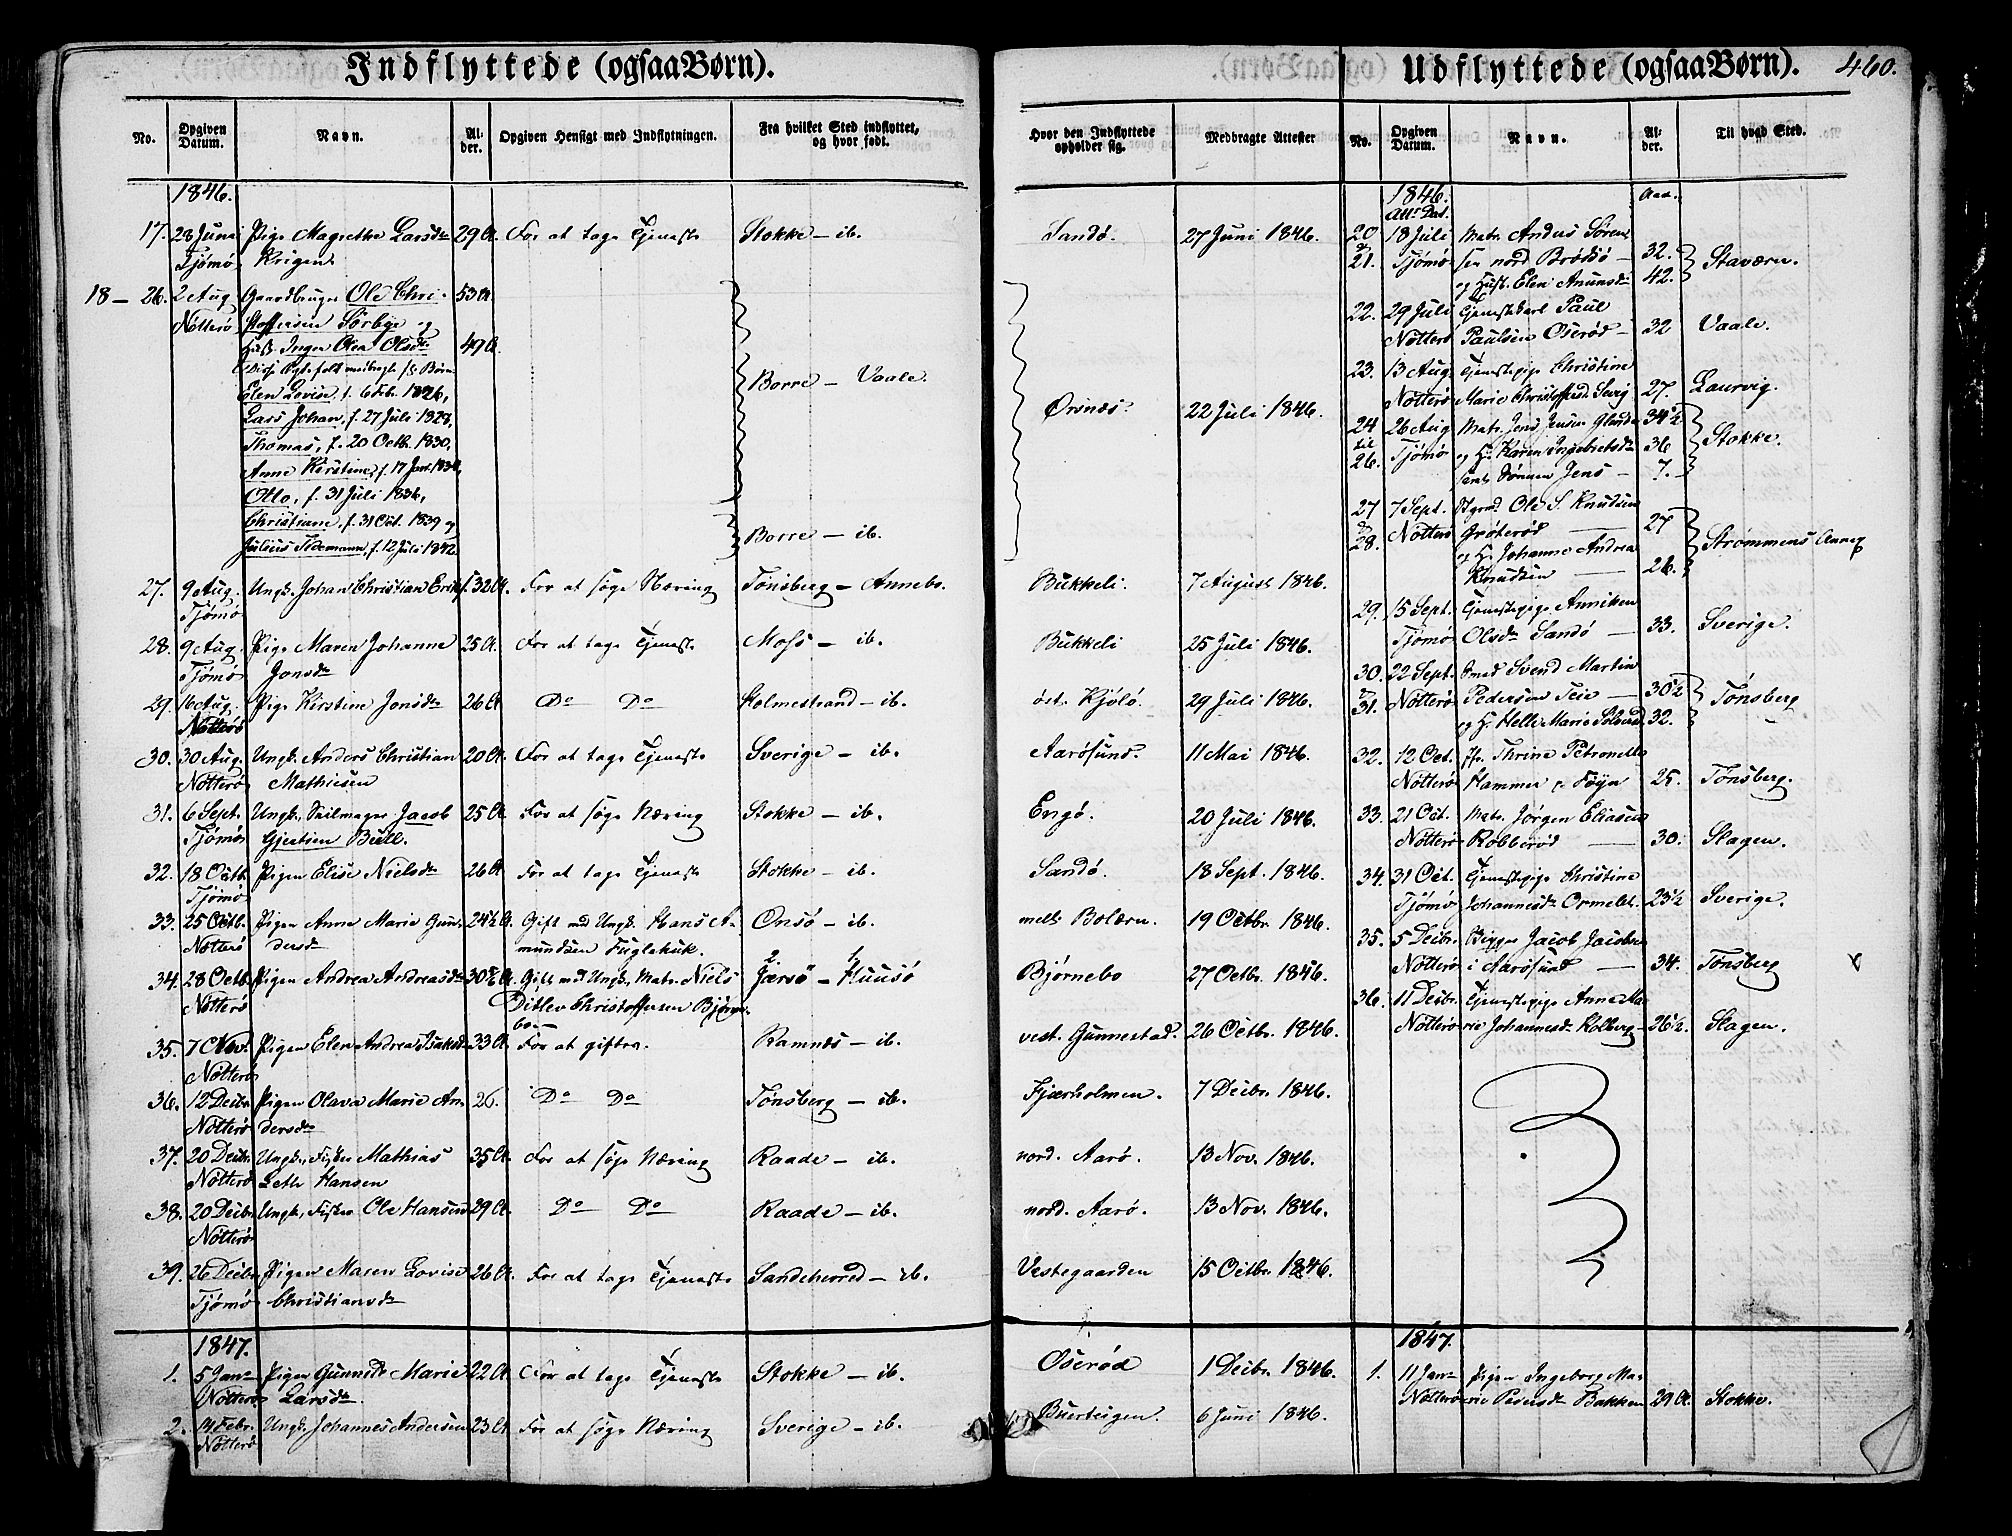 Indflyttede (ogsaa Børn).
No. Opgiven Datum. Navn. Alder. Opgiven Hensigt med Indflytningen. Fra hvilket Sted indflyttet, og hvor født. Hvor den Indflyttede opholder sig. Medbragte Attester
1846.
17. 28 Juni Pige Magrethe Larsdr 29 A. For at tage Tjeneste Stokke – ib. Sandö. 27 Juni 1846.
Tjömö Krigen
18 – 26. 2 Aug Gaardbruger Ole Chri- 53 A.
Nötterö stoffersen Sörbye og
Hust. Inger Olea Olsdr 49 A.
Elen Lovise, f. 6 Feb. 1826, Borre – Vaale. Örsnæs. 22 Juli 1846.
Lars Johan, f. 27 Juli 1828,
Thomas, f. 20 Octb. 1830,
Anne Kirstine, f. 17 Jan.
Otto, f. 31 Juli 1836,
Christiane, f. 31 Oct. 1839 og
Julius Tidemann, f. 12 Juli 1842 Borre – ib.
27. 9 Aug. Ungk. Johan Christian Eriks. 32 A. For at söge Næring Tönsberg – Annebo. Bukkeli. 7 August 1846.
Tjömö
28. 9 Aug. Pige Maren Johanne 25 A. For at tage Tjeneste Moss – ib. Bukkeli 25 Juli 1846.
Tjömö Jonsdr
29. 16 Aug. Pige Kirstine Jonsdr 26 A. Do Do Holmestrand – ib. öst. Kjölö. 29 Juli 1846.
Nötterö
30. 30 Aug. Ungk. Anders Christian 20 A. For at tage Tjeneste Sverige – ib. Aarösund. 11 Mai 1846.
Nötterö Mathiesen
31. 6 Sept. Ungk. Seilmager Jacob 25 A. For at söge Næring Stokke – ib. Engö. 20 Juli 1846.
Tjömö Gjertsen Bull.
32. 18 Octb. Pigen Elise Nielsdr 26 A. For at tage Tjeneste Stokke – ib. Sandö. 18 Sept. 1846.
Tjömö
33. 25 Octb. Pigen Anne Marie Gun- 24½ A. Gift med Ungk. Hans A- Onsö – ib. mell. Bolærn. 19 Octbr. 1846.
Nötterö dersdr mundsen Fuglehuk.
34. 28 Octb. Pigen Andrea Andreasdr 30 A. Gift med Ungk. Matr. Niels Jærsö – Huusö Bjørnebo 27 Octbr. 1846.
Nötterö Ditlev Christoffersen Bjørne-
bo
35. 7 Nov. Pigen Elen Andrea Isaksdr 33 A. For at giftes. Ramnæs – ib. vest. Gunnestad. 26 Octbr. 1846.
Nötterö
36. 12 Decbr. Pigen Olava Marie An- 26. Do Do Tönsberg – ib. Fjærholmen. 7 Decbr. 1846.
Nötterö dersdr
37. 20 Decbr. Ungk. Fisker Mathias 35 A. For at söge Næring Raade – ib. nord. Aarö. 13 Nov. 1846.
Nötterö Hansen
38. 20 Decbr. Ungk. Fisker Ole Hansen 29 A. Do Do Raade – ib. nord. Aarö. 13 Nov. 1846.
Nötterö
39. 26 Decbr. Pigen Maren Lovise 26 A. For at tage Tjeneste Sandeherred – ib. Vestegaarden 15 Octbr. 1846.
Tjömö Christiansdr
1847.
1. 5 Janr Pigen Gunnild Marie 22 A. For at tage Tjeneste Stokke – ib. Oserød 1 Decbr. 1846.
Nötterö Larsdr
2. 14 Febr. Ungk. Johannes Andersen 23 A. For at söge Næring Sverige – ib. Buertugen. 6 Juni 1846.
Nötterö
Udflyttede (ogsaa Børn). 460.
No. Opgiven Datum. Navn. Alder. Til hvad Sted.
1846. Aar.
Att. Dat.
20 18 Juli Matr. Anders Sören-
21. Tjömö sen nord. Brödsö – 32. Staværn.
og Hust. Elen Amundsdr 42.
22. 29 Juli Tjenestekarl Paul
Nötterö Paulsen Oserød – 32 Vaale.
23. 13 Aug. Tjenestepige Christine
Nötterö Marie Christoffersdr 27. Laurvig.
24 26 Aug Matr. Jens Jensen 34½
til Tjömö og H. Karen Ingebretsdr 36 Stokke.
26. samt Sønnen Jens – 7.
27 7 Sept. Ole S. Knudsen
28. Nötterö Gröterød 27 Strömmens Annex
og H. Johanne Andrea
Knudsen 26.
29. 15 Sept. Tjenestepige Anniken
Tjömö Olsdr Sandö – 33. Sverige.
30. 22 Sept. Smed Svend Martin
31. Nötterö Pedersen Teie – 30½ Tönsberg
og H. Helle Marie 32.
32. 12 Oct. Fr. Thrine Petronelle
Nötterö Hammer Föyn 25. Tönsberg.
33. 21 Oct. Matr. Jörgen Eliasen
Nötterö Robberød 30. Slagen.
34. 31 Oct. Tjenestepige Christine
Tjömö Johannesdr Ormelet. 23½ Sverige.
35. 5 Decbr. Bygger Jacob Jacobsen
Nötterö i Aarösund 34. Tönsberg
36. 11 Decbr. Tjenestepige Anne Ma-
Nötterö rie Johannesdr Kolberg 26½. Slagen.
1847.
1. 11 Janr Pigen Ingeborg Ma-
Nötterö rie Pedersdr Bakken 29 A. Stokke.